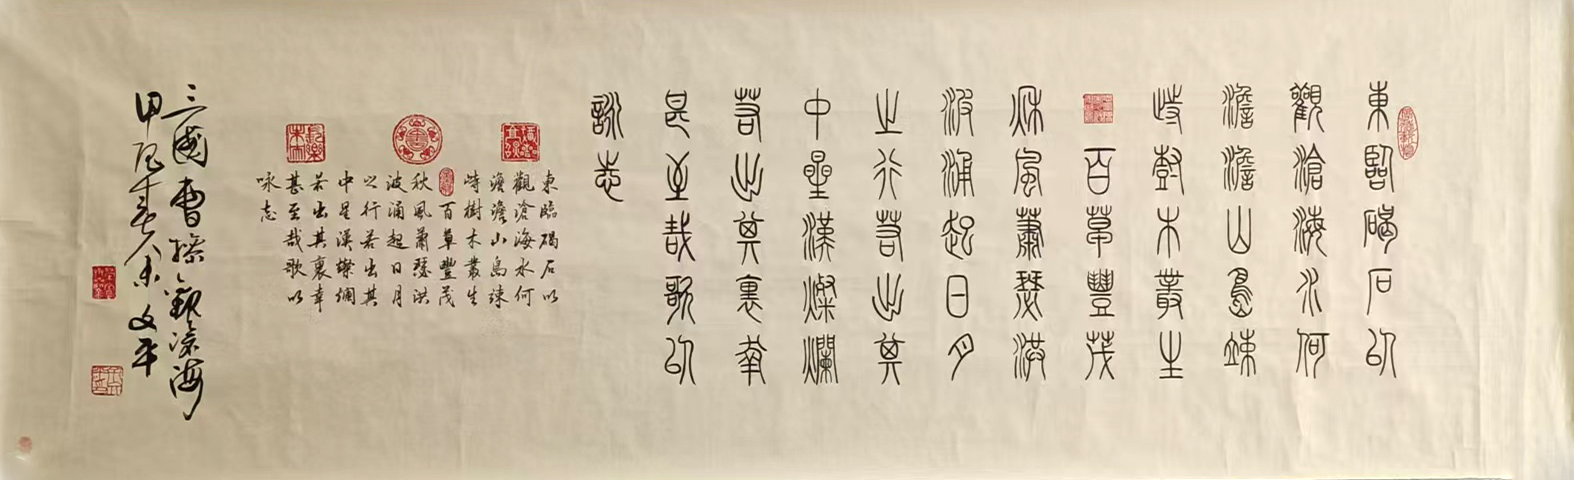 東臨碣石以
觀滄海水何
澹澹山島竦
峙樹木叢生
百草豐茂
秋風蕭瑟洪
波涌起日月
之行若出其
中星漢燦爛
若出其裏幸
甚至哉歌以
詠志
東臨碣石以
觀滄海水何
澹澹山島竦
峙樹木叢生
百草豐茂
秋風蕭瑟洪
波涌起日月
之行若出其
中星漢燦爛
若出其裏幸
甚至哉歌以
咏志
三國曹操觀滄海
甲辰春人余文平